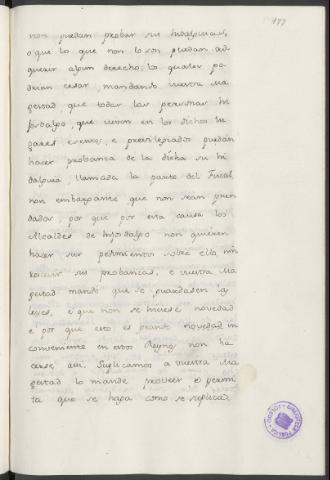 177
non puedan probar sus hidalguias,
o que los que non lo son puedan ad-
querir algun derecho: los quales po-
drian cesar, mandando vuestra Ma-
gestad que todas las personas hi-
josdalgo, que viven en los dichos lu-
gares exentos, e previlegiados puedan
hacer probanza de la dicha su hi-
dalguia, llamada la parte del Fiscal
non embargante, que non sean pren-
dados, por que por esta causa los
Alcaldes de Hijosdalgo non quieren
hacer sus pedimentos sobre ello, nin
recivir sus probanzas, e vuestra Ma-
gestad mandó que se guardasen las
leyes, e que non se hiciese novedad
e por que esto es grande novedad in-
conveniente en estos Reynos non ha-
cerse, asi. Suplicamos a vuestra Ma-
gestad lo mande proveer e permi-
ta que se haga como se suplica.